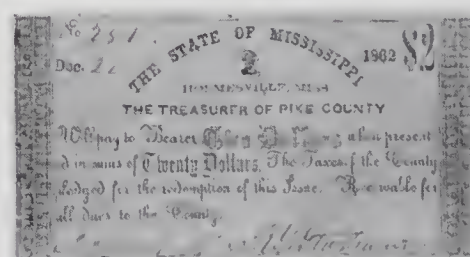 No 251.
THE STATE OF MISSISSIPPI
1862 $2
Dec. 2
2
HOLMESVILLE, MISS
THE TREASURER OF PIKE COUNTY
Will pay to Bearer when present
d in sums of Twenty Dollars. The Taxes of the County
pledged for the redemption of this Issue. Receivable for
all dues to the County.